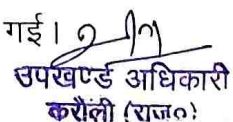 गई।
उपखण्ड अधिकारी
करौली (राज०)